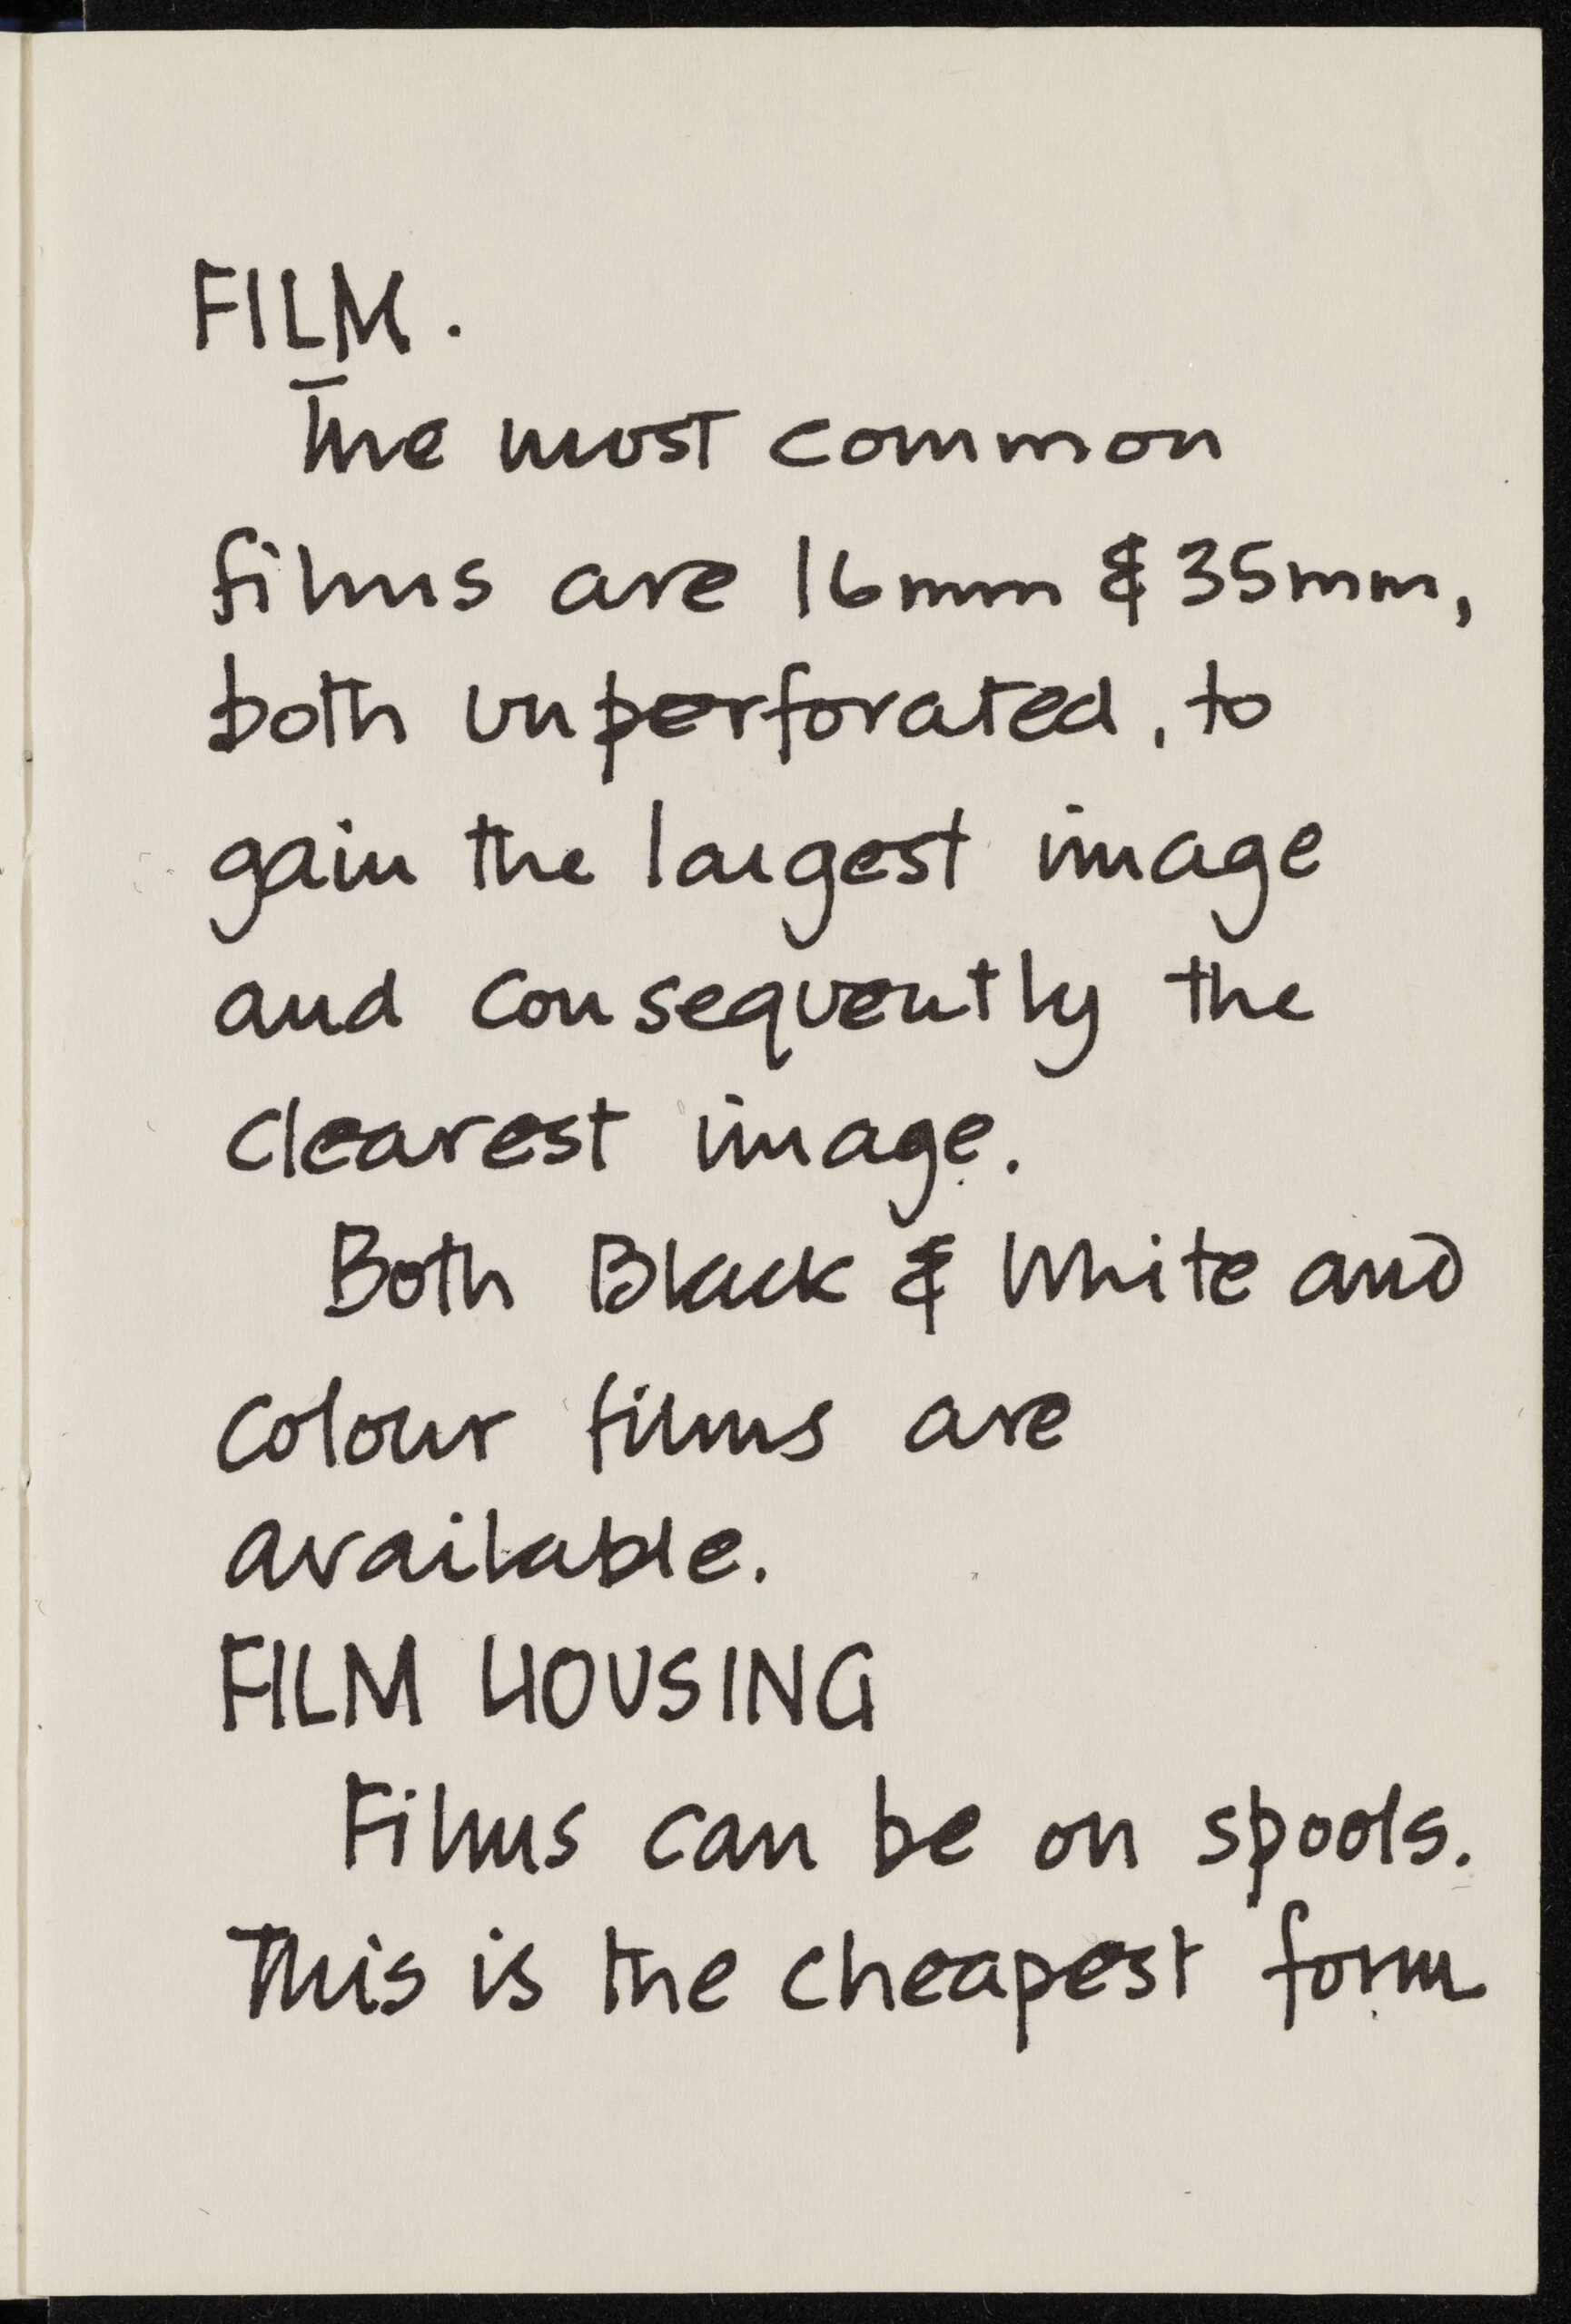 FILM.
The most common
films are 16mm & 35mm,
both unperforated, to
gain the largest image
and consequently the
clearest image.
Both Black & White and
colour films are
available.
FILM HOUSING
Films can be on spools.
This is the cheapest form